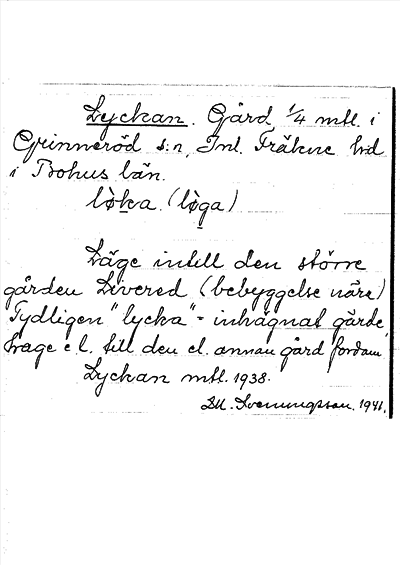 Lyckan. Gård 1/4 mtl. i
Grinneröd s:n, Inl. Fräkne hd
i Bohus län.
lø̀ḵa (lø̀g̱a)
Läge intill den större
gården Livered (bebyggelse nära)
Tydligen "lycka" = inhägnat gärde,
hage e.l. till den el. annan gård fordom
Lyckan mtl. 1938.
Svenungsson. 1941.